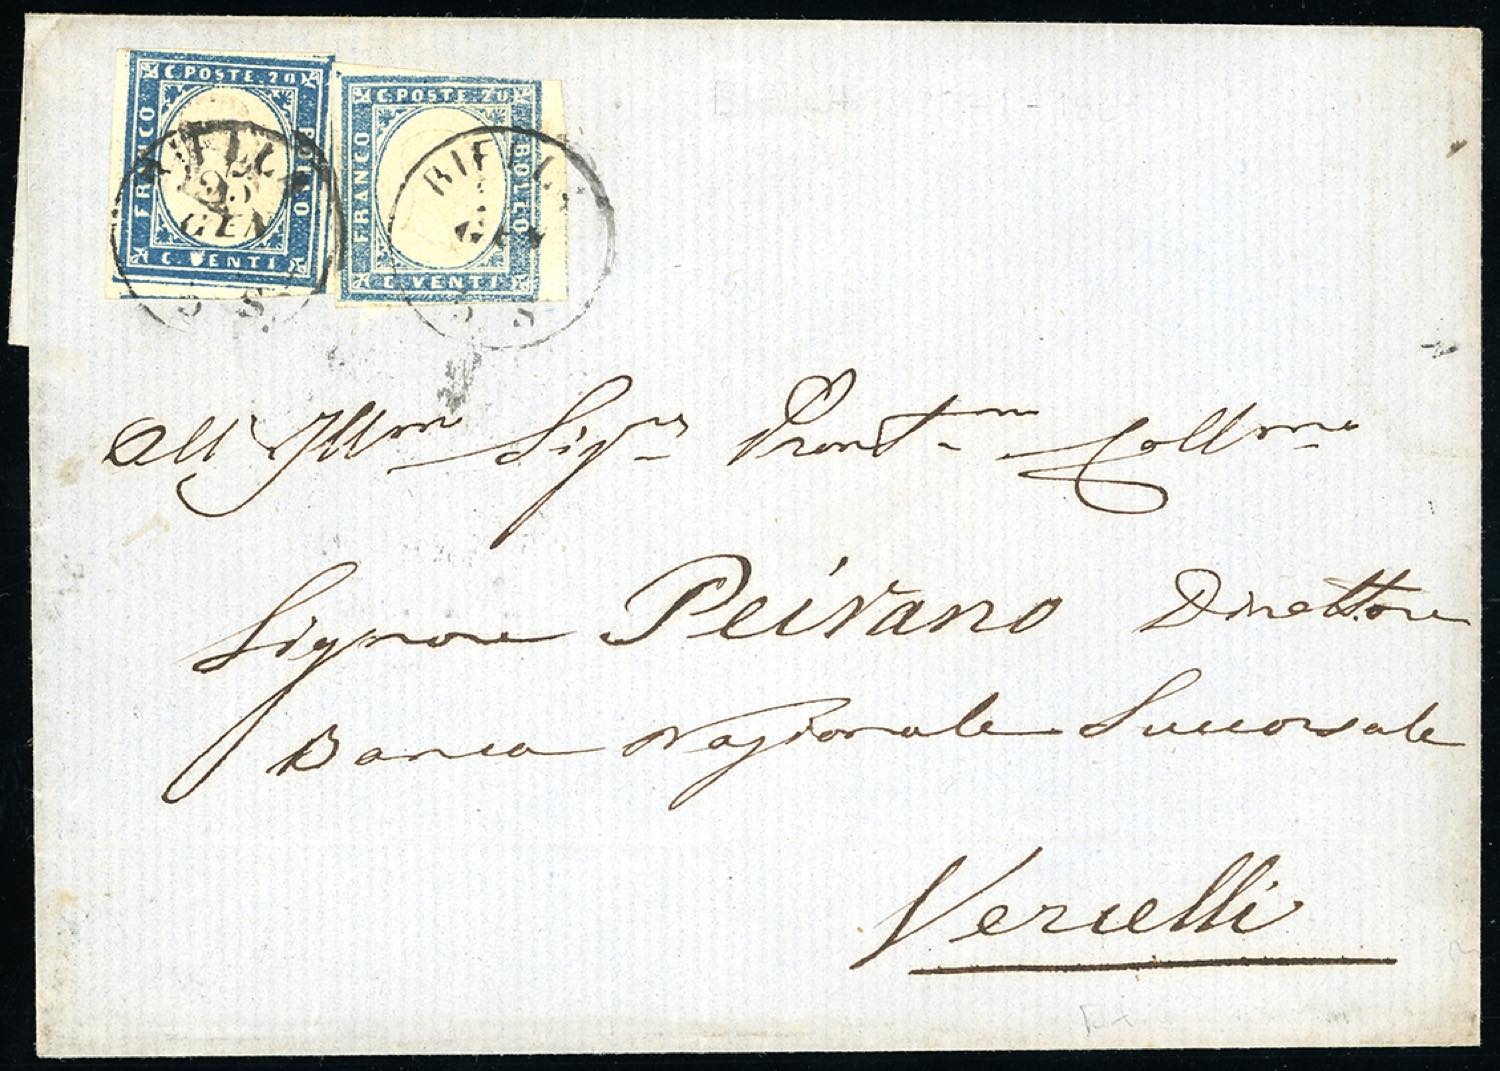 C. POSTE. 20
FRANCO
BOLLO
C. VENTI
BIELLA
25
GEN
5 8
C. POSTE. 20
FRANCO
BOLLO
C. VENTI
BIELLA
GEN
5 8
All' Illmo Sigr Pront.mo Collmo
Signore Peirano Direttore
Banca Nazionale Succorsale
Vercelli